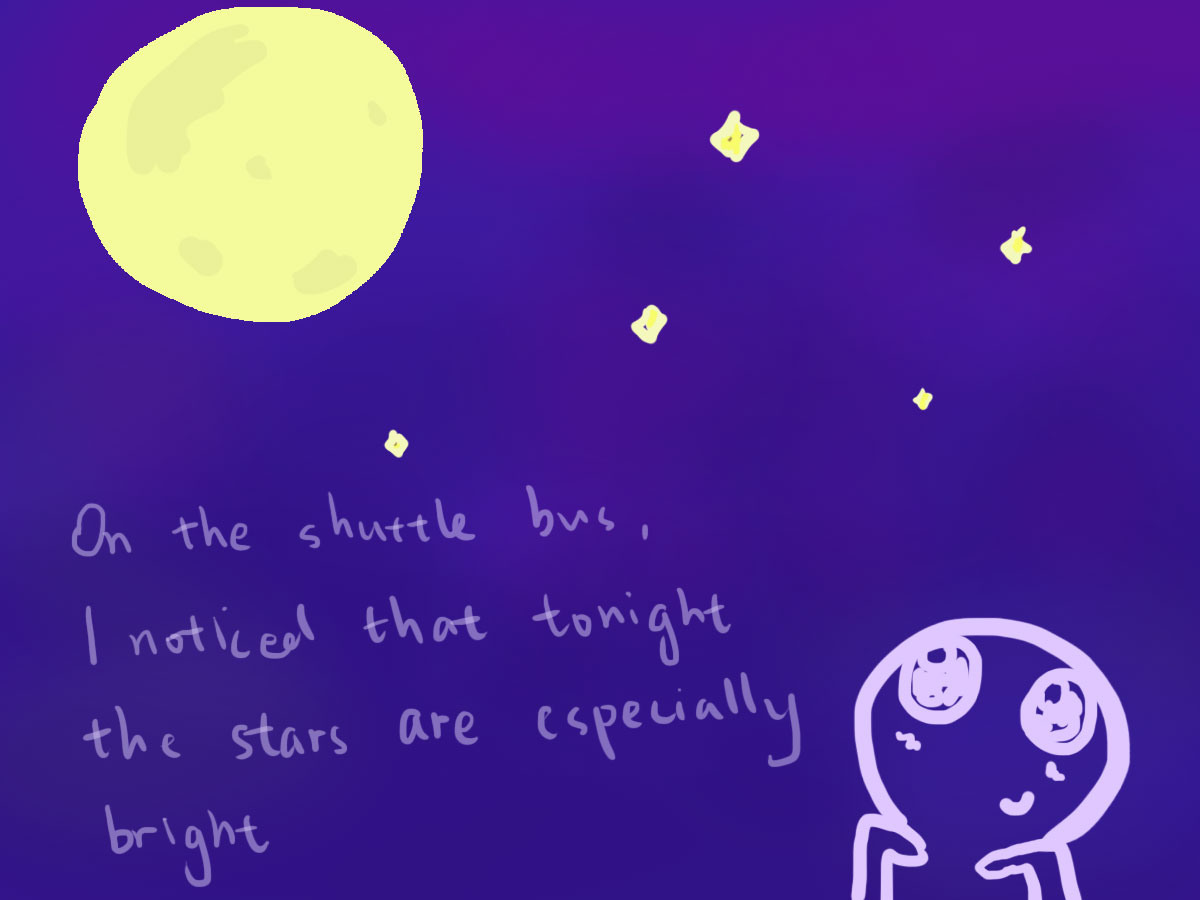 On the shuttle bus,
I noticed that tonight
the stars are especially
bright